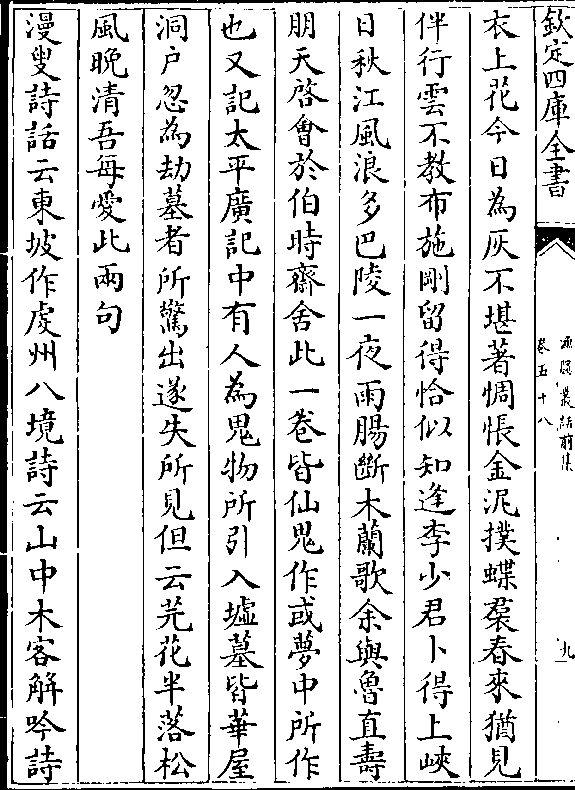 欽定四庫全書
漁隱叢話前集
卷五十八
九
衣上花今日為灰不堪著惆悵金泥撲蝶裙春來猶見
伴行雲不教布施剛留得恰似知逢李少君卜得上峽
日秋江風浪多巴陵一夜雨腸斷木蘭歌余與魯直壽
朋天啓會於伯時齋舍此一卷皆仙鬼作或夢中所作
也又記太平廣記中有人為鬼物所引入墟墓皆華屋
洞户忽為劫墓者所驚出遂失所見但云芫花半落松
風晚清吾每愛此兩句
漫叟詩話云東坡作虔州八境詩云山中木客解吟詩